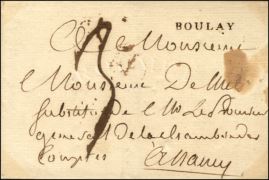 BOULAY
A Monsieur
Monsieur De
Substitut de M. Le Procureur
general de la chambre des
Comptes
A Nancy